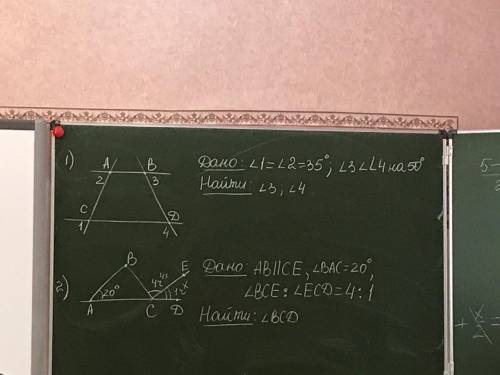 1)
A B
2 3
C D
1 4
Дано: ∠1=∠2=35°; ∠3∠∠4 на 50°
Найти: ∠3, ∠4
2)
B
E
20°
A C D
Дано: AB||CE, ∠BAC=20°,
∠BCE:∠ECD=4:1
Найти: ∠BCD
5-
+ x